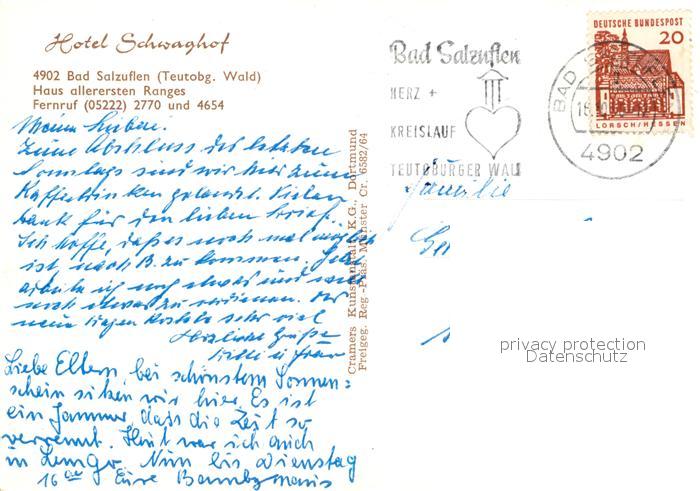 Hotel Schwaghof
4902 Bad Salzuflen (Teutobg. Wald)
Haus allerersten Ranges
Fernruf (05222) 2770 und 4654
Meine Lieben.
Zum Abschluss des letzten
Sonntags sind wir hier zum
Kaffeetrinken gelandet. Vielen
Dank für den lieben Brief.
Ich hoffe, daß es noch mal möglich
ist, nach B. zu kommen. Jetzt
arbeite ich noch etwas und
noch etwas zu verdienen. Der
neue Wagen kostete sehr viel
Herzliche Grüße
Willi u Frau
Liebe Eltern, bei schönstem Sonnen=
schein sitzen wir hier. Es ist
ein Jammer, dass die Zeit so
verrennt. Heut war ich auch
in Lemgo. Nun bis Dienstag
16 00 Eure
Cramers Kunstanstalt K.G., Dortmund
Freigeg. Reg.-Präs. Münster Cr. 6582/64
Bad Salzuflen
HERZ +
KREISLAUF
TEUTOBURGER WALD
BAD SALZUFLEN
4902
DEUTSCHE BUNDESPOST
20
LORSCH/HESSEN
Familie
privacy protection
Datenschutz